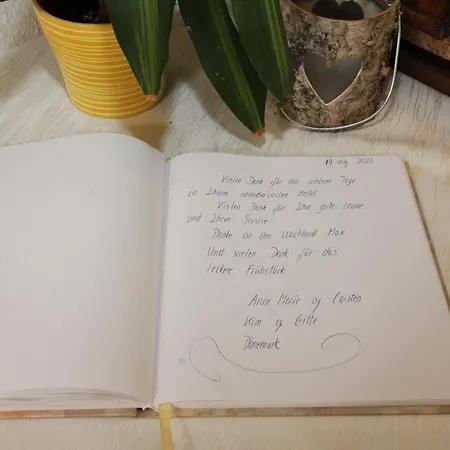 19 maj 2023
Vielen Dank für die schönen Tage
in Ihrem wundervollen Hotel
Vielen Dank für Ihre gute Laune
und Ihren Service
Danke an den Wachhund Max
Und vielen Dank für das
leckere Frühstück
Anne Marie og Carsten
Kim og Gitte
Dänemark